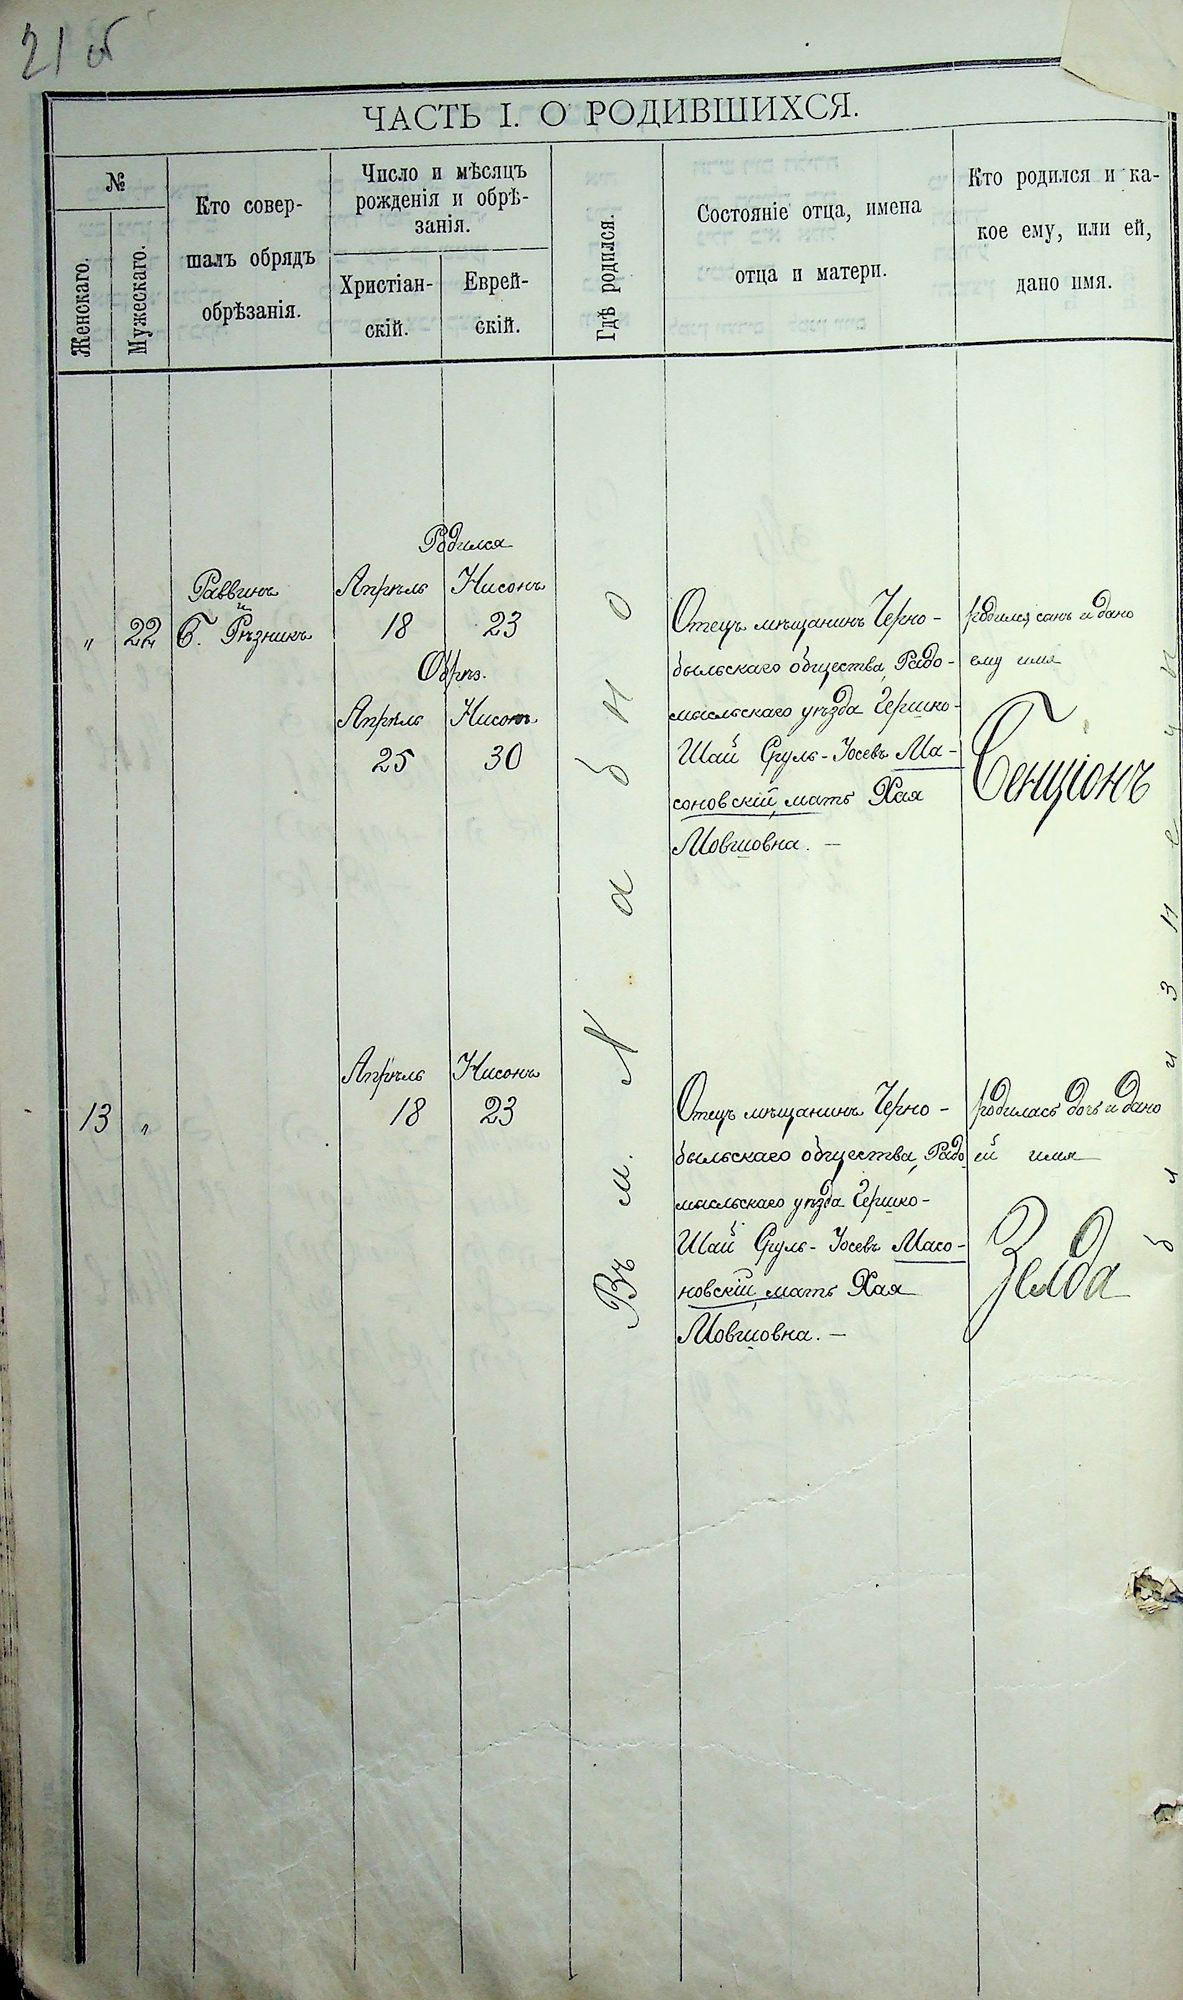 21 об
ЧАСТЬ I. О РОДИВШИХСЯ.
№
Женскаго.
Мужескаго.
Кто совер-
шалъ обрядъ
обрѣзанія.
Число и мѣсяцъ
рожденія и обрѣ-
занія.
Христіан-
скій.
Еврей-
скій.
Гдѣ родился.
Состояніе отца, имена
отца и матери.
Кто родился и ка-
кое ему, или ей,
дано имя.
Родился
Раввинъ
и
Б. Рѣзникъ
„ 22
Апрѣль Нисонъ
18 23
Обрѣз.
Апрѣль Нисонъ
25 30
Въ м. Набно
Отецъ мѣщанинъ Черно-
быльскаго общества, Радо-
мысльскаго уѣзда Гершко-
Шай Сруль-Іосевъ Ма-
соновскій, мать Хая
Мовшовна. —
родился сынъ и дано
ему имя
Бенціонъ
13 „
Апрѣль Нисонъ
18 23
Отецъ мѣщанинъ Черно-
быльскаго общества, Радо
мысльскаго уѣзда Гершко-
Шай Сруль-Іосевъ Масо-
новскій, мать Хая
Мовшовна. —
родилась дочь и дано
ей имя
Зелда
близнецы